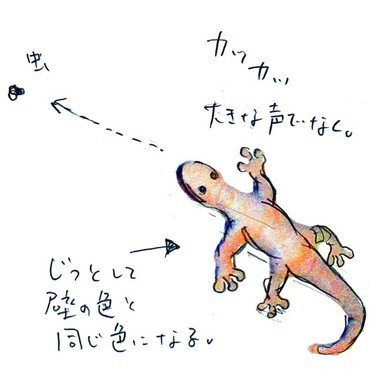 虫
カッ
カッ
大きな声でなく。
じっとして
壁の色と
同じ色になる。